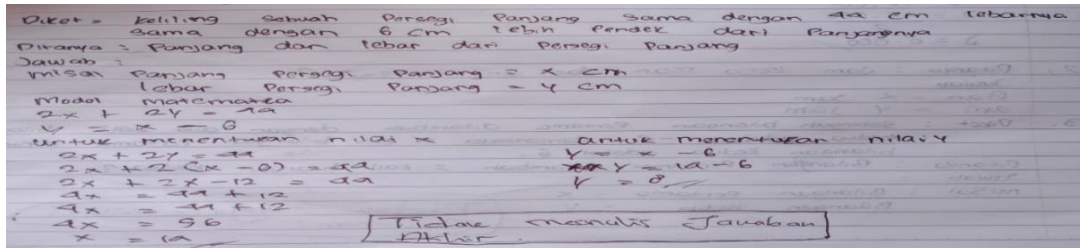 Diket = Keliling Sebuah Persegi Panjang Sama dengan 44 cm lebarnya
sama dengan 6 cm lebih Pendek dari Panjangnya
Ditanya : Panjang dan lebar dari Persegi Panjang
Jawab :
misal Panjang Persegi Panjang = x cm
lebar Persegi Panjang = y cm
Model matematika
2x + 2y = 44
y = x - 6
untuk menentukan nilai x untuk menentukan nilai y
2x + 2y = 44 y = x - 6
2x + 2 (x - 6) = 44 y = 14 - 6
2x + 2x - 12 = 44 y = 8
4x = 44 + 12
4x = 44 + 12
4x = 56
x = 14
Tidak menulis Jawaban
Akhir